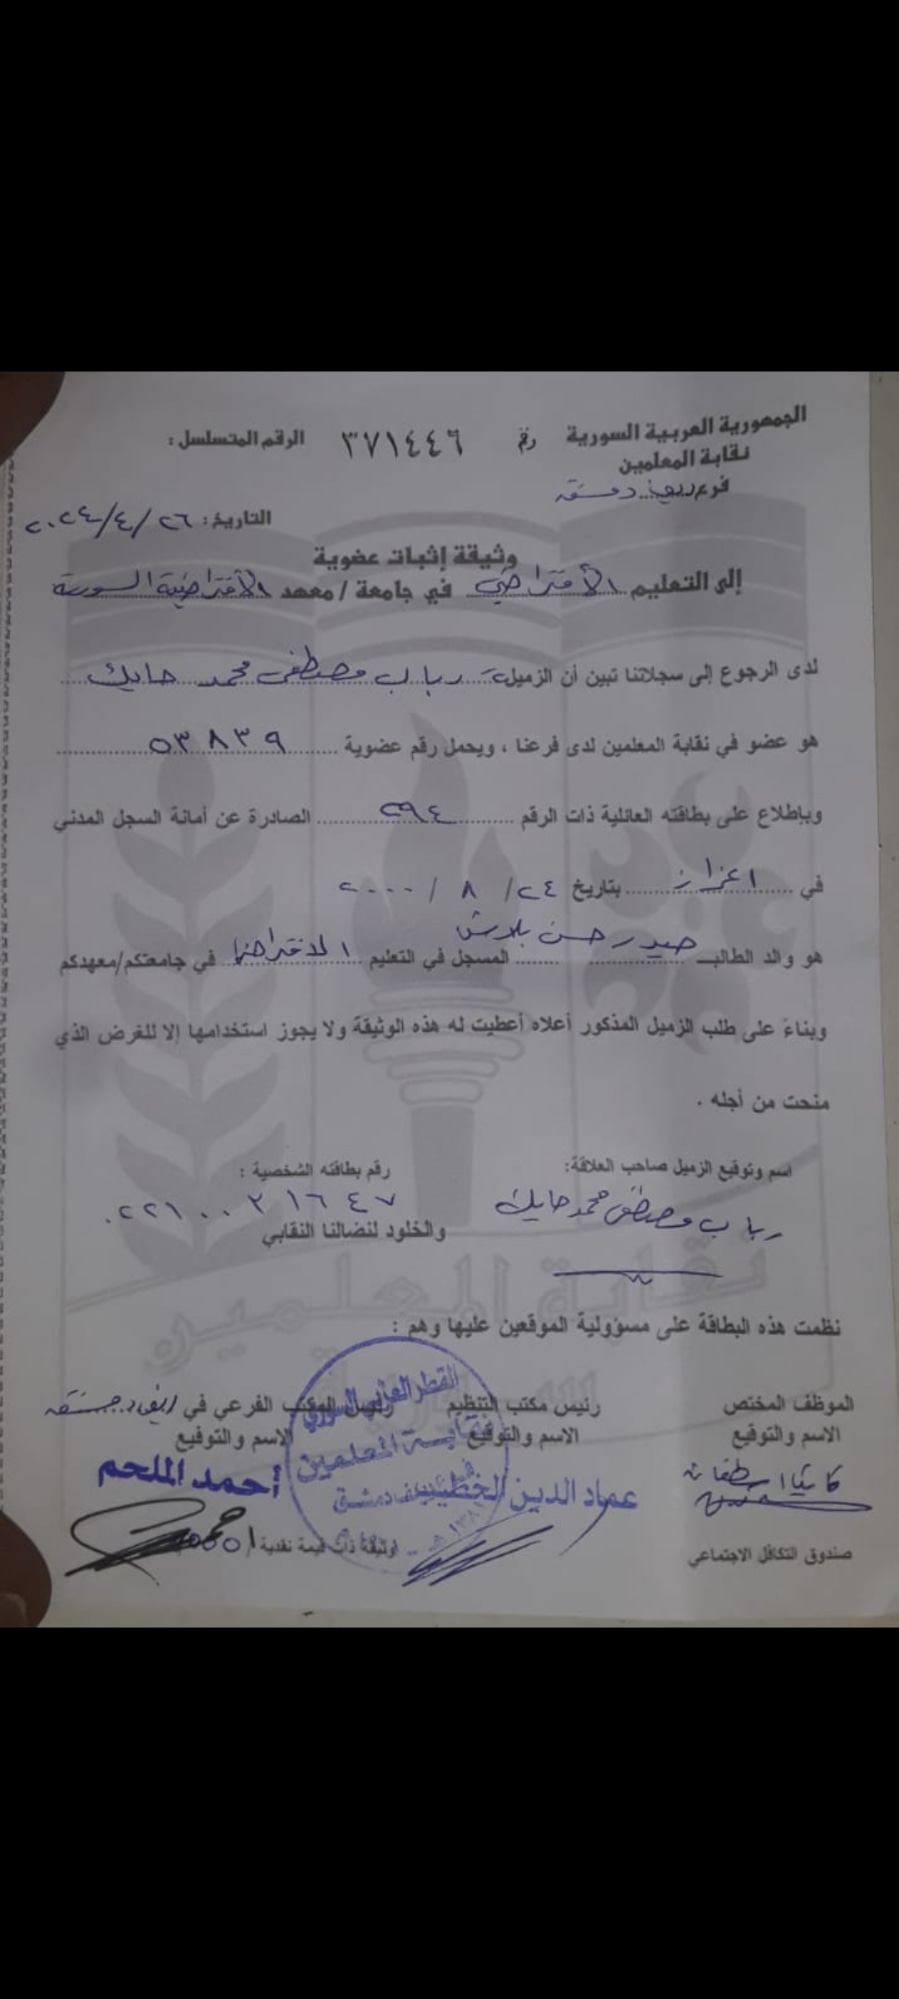 الجمهورية العربية السورية
نقابة المعلمين
فرع ريف دمشق
رقم ٣٧١٤٤٦ الرقم المتسلسل :
التاريخ : ٢٦ / ٤ / ٢٠٢٤
وثيقة إثبات عضوية
إلى التعليم الأفتراضي في جامعة / معهد الأفتراضية السورية
لدى الرجوع إلى سجلاتنا تبين أن الزميلة رباب مصطفى محمد حايك
هو عضو في نقابة المعلمين لدى فرعنا ، ويحمل رقم عضوية ٥٣٨٣٩
وباطلاع على بطاقته العائلية ذات الرقم ٢٩٤ الصادرة عن أمانة السجل المدني
في اعزاز بتاريخ ٢٤ / ٨ / ٢٠٠٠
هو والد الطالب حيدر حسن المسجل في التعليم في جامعتكم/معهدكم
وبناءً على طلب الزميل المذكور أعلاه أعطيت له هذه الوثيقة ولا يجوز استخدامها إلا للغرض الذي
منحت من أجله .
اسم وتوقيع الزميل صاحب العلاقة: رقم بطاقته الشخصية :
رباب مصطفى محمد حايك ٠٢٢١٠٠٢١٦٤٧
والخلود لنضالنا النقابي
نقابة المعلمين
نظمت هذه البطاقة على مسؤولية الموقعين عليها وهم :
الموظف المختص رئيس مكتب التنظيم رئيس المكتب الفرعي في ريف دمشق
الاسم والتوقيع الاسم والتوقيع الاسم والتوقيع
عماد الدين الخطيب أحمد الملحم
القطر العربي السوري
نقابة المعلمين
صندوق التكافل الاجتماعي وثيقة ذات قيمة نقدية